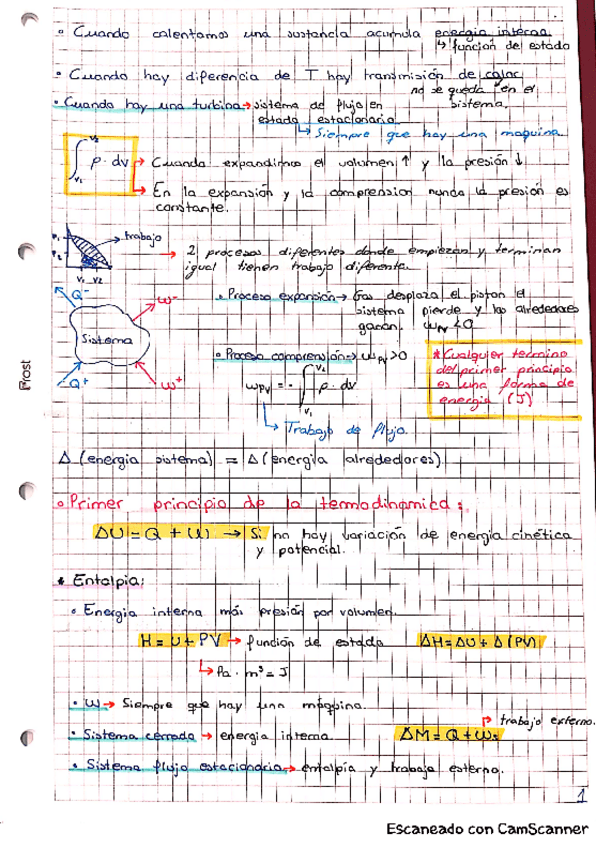 • Cuando calentamos una sustancia acumula energía interna
↳ función de estado
• Cuando hay diferencia de T hay transmisión de calor
no se queda en el sistema.
• Cuando hay una turbina → sistema de flujo en estado estacionario
↳ Siempre que hay una maquina
∫ V₂ V₁ P · dv → Cuando expandimos el volumen ↑ y la presión ↓
→ En la expansión y la compresion nunca la presión es
constante.
P₁ → trabajo
P₂
V₁ V₂
→ 2 procesos diferentes donde empiezan y terminan
igual tienen trabajo diferente.
Q⁻ W⁻
Sistema
Q⁺ W⁺
• Proceso expansión → Gas desplaza el piston el
sistema pierde y los alrededores
ganan. W_PV < 0
• Proceso comprensión → W_PV > 0
W_PV = - ∫ V₂ V₁ P · dv
↳ Trabajo de flujo.
* Cualquier termino
del primer principio
es una forma de
energia (J)
Frost
Δ (energia sistema) = Δ (energia alrededores)
• Primer principio de la termodinamica:
ΔU = Q + W → Si no hay variación de energía cinética
y potencial.
* Entalpia:
• Energia interna más presión por volumen.
H = U + PV → función de estado ΔH = ΔU + Δ(PV)
↳ Pa · m³ = J
• W → Siempre que hay una máquina.
• Sistema cerrado → energia interna
→ trabajo externo.
• Sistema flujo estacionario → entalpía y trabajo esterno.
1
Escaneado con CamScanner